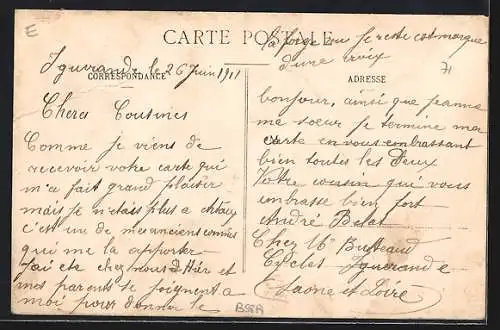 E
CARTE POSTALE
Iguerande le 26 Juin 1911
CORRESPONDANCE
Cheres Cousines
Comme je viens de
recevoir votre carte qui
m'a fait grand plaisir
mais je n'etais plus a
c'est un de mes anciens
qui me la apporter
J'ai ete chez nous Hier et
mes parents se joignent a
moi pour donner le
la forge ou je reste est marque
d'une croix
71
ADRESSE
bonjour, ainsi que jeanne
ma soeur je termine ma
carte en vous embrassant
bien toutes les Deux
Votre cousin qui vous
embrasse bien fort
André Belat
Chez Mr
Cycles Iguerande
Saone et Loire